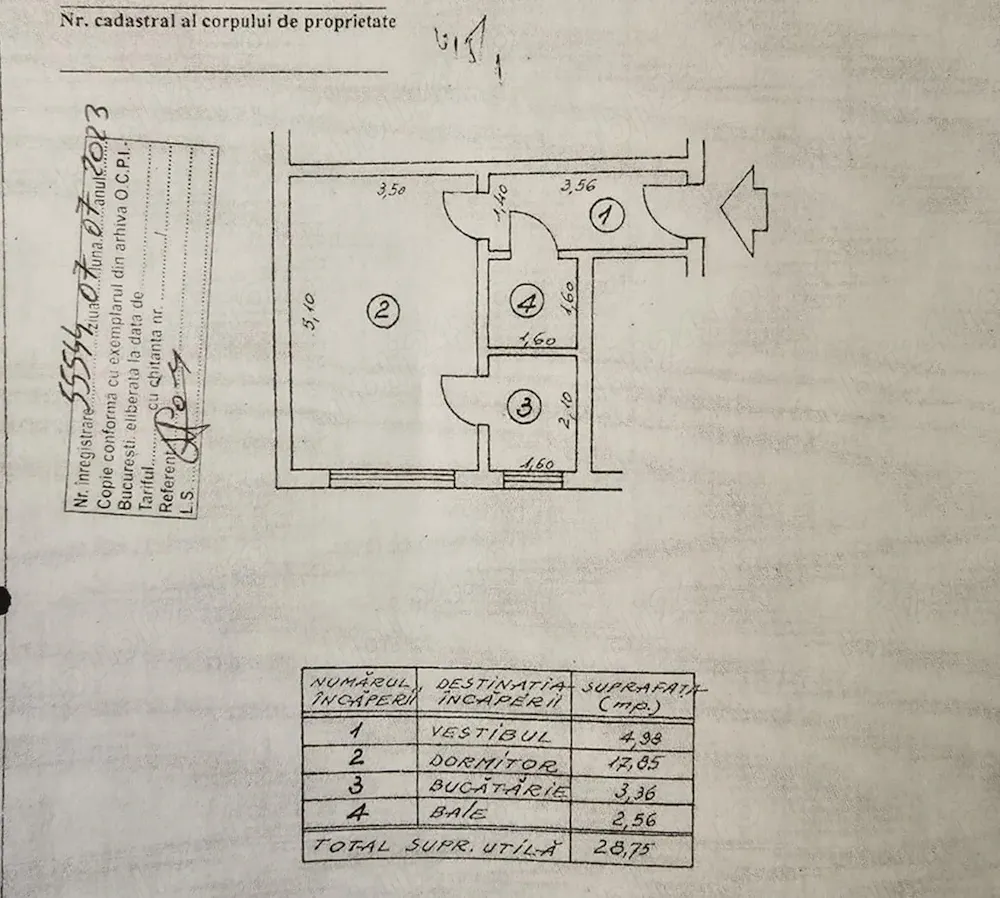 Nr. cadastral al corpului de proprietate
Nr. înregistrare 55544 ziua 07 luna 07 anul 2023
Copie conformă cu exemplarul din arhiva O.C.P.I.
Bucureşti. eliberată la data de
Tariful cu chitanta nr. /
Referent
L.S.
3,50
1,40
3,56
1
5,10
2
4
1,60
1,60
3
2,10
1,60
NUMĂRUL ÎNCĂPERII DESTINAŢIA ÎNCĂPERII SUPRAFAŢA (mp.)
1 VESTIBUL 4,98
2 DORMITOR 17,85
3 BUCĂTĂRIE 3,36
4 BAIE 2,56
TOTAL SUPR. UTILĂ 28,75